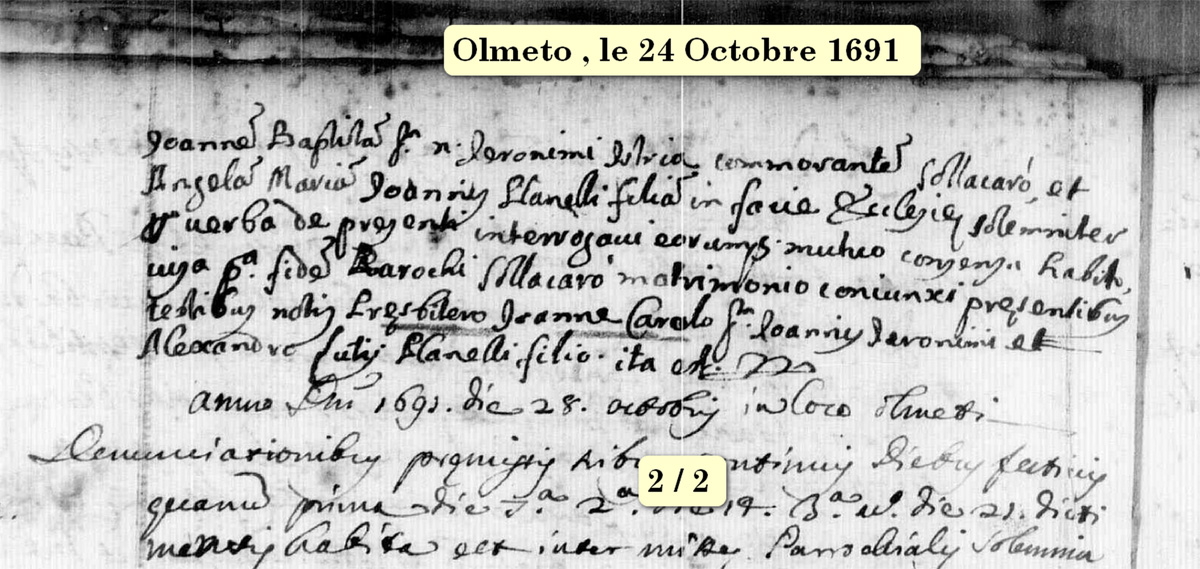 Olmeto , le 24 Octobre 1691
Joanne Baptista fr. n. Jeronimi Istria commorante Sollacaró et
Angela Maria Joannis Planelli filia in facie Ecclesie solemniter
verba de presenti interrogavi eorumq. mutuo consensu habito,
visa fide Parochi Sollacaró matrimonio coniunxi presentibus
testibus notis Presbitero Joanne Carolo Joannis Jeronimi et
Alexandro Planelli filio. ita est.
anno Dni 1691. die 28. octobris in loco olmeti
Denunciationibus premissis continuis diebus festivis
2 / 2
prima die 2a. die 14. 3a. v. die 21. dicti
mensis habita est inter misse Parrochialis solemnia